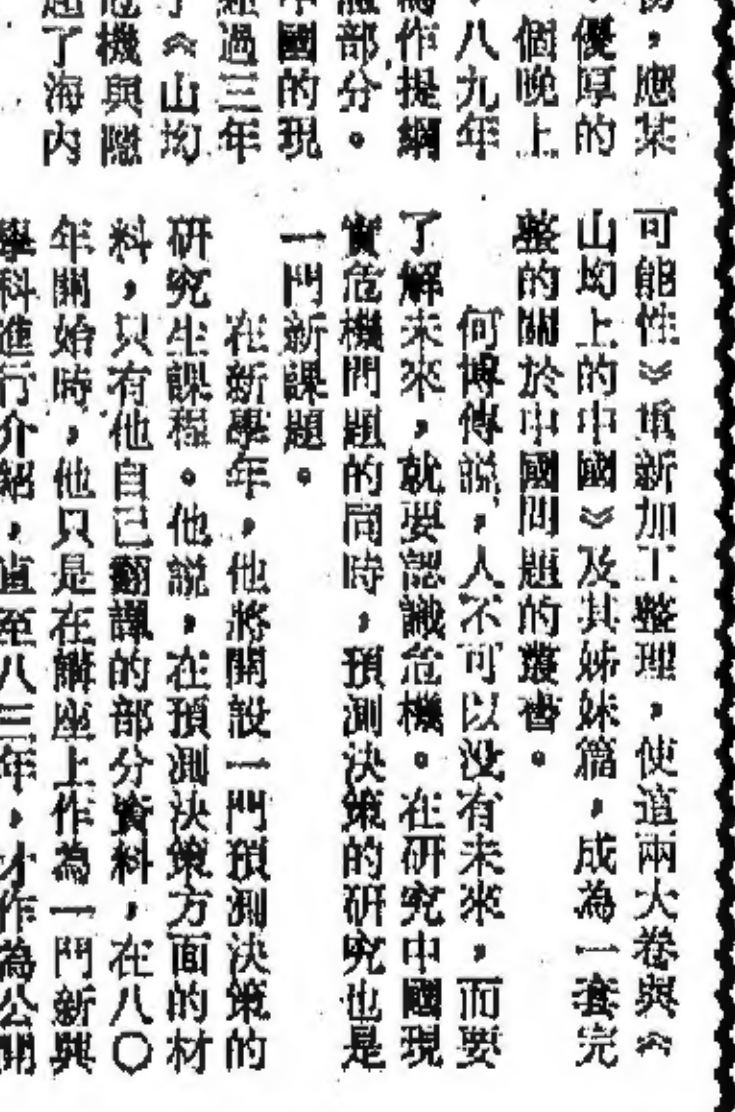 ，應某
優厚的
個晚上
八九年
作提綱
部分。
國的現
過三年
《山坳
機與隱
了海內
可能性》重新加工整理，使這兩大卷與《
山坳上的中國》及其姊妹篇，成為一套完
整的關於中國問題的叢書。
何博傳説，人不可以沒有未來，而要
了解未來，就要認識危機。在研究中國現
實危機問題的同時，預測決策的研究也是
一門新課題。
在新學年，他將開設一門預測決策的
研究生課程。他説，在預測決策方面的材
料，只有他自己翻譯的部分資料，在八〇
年開始時，他只是在講座上作為一門新興
學科進行介紹，直至八三年，才作為公開